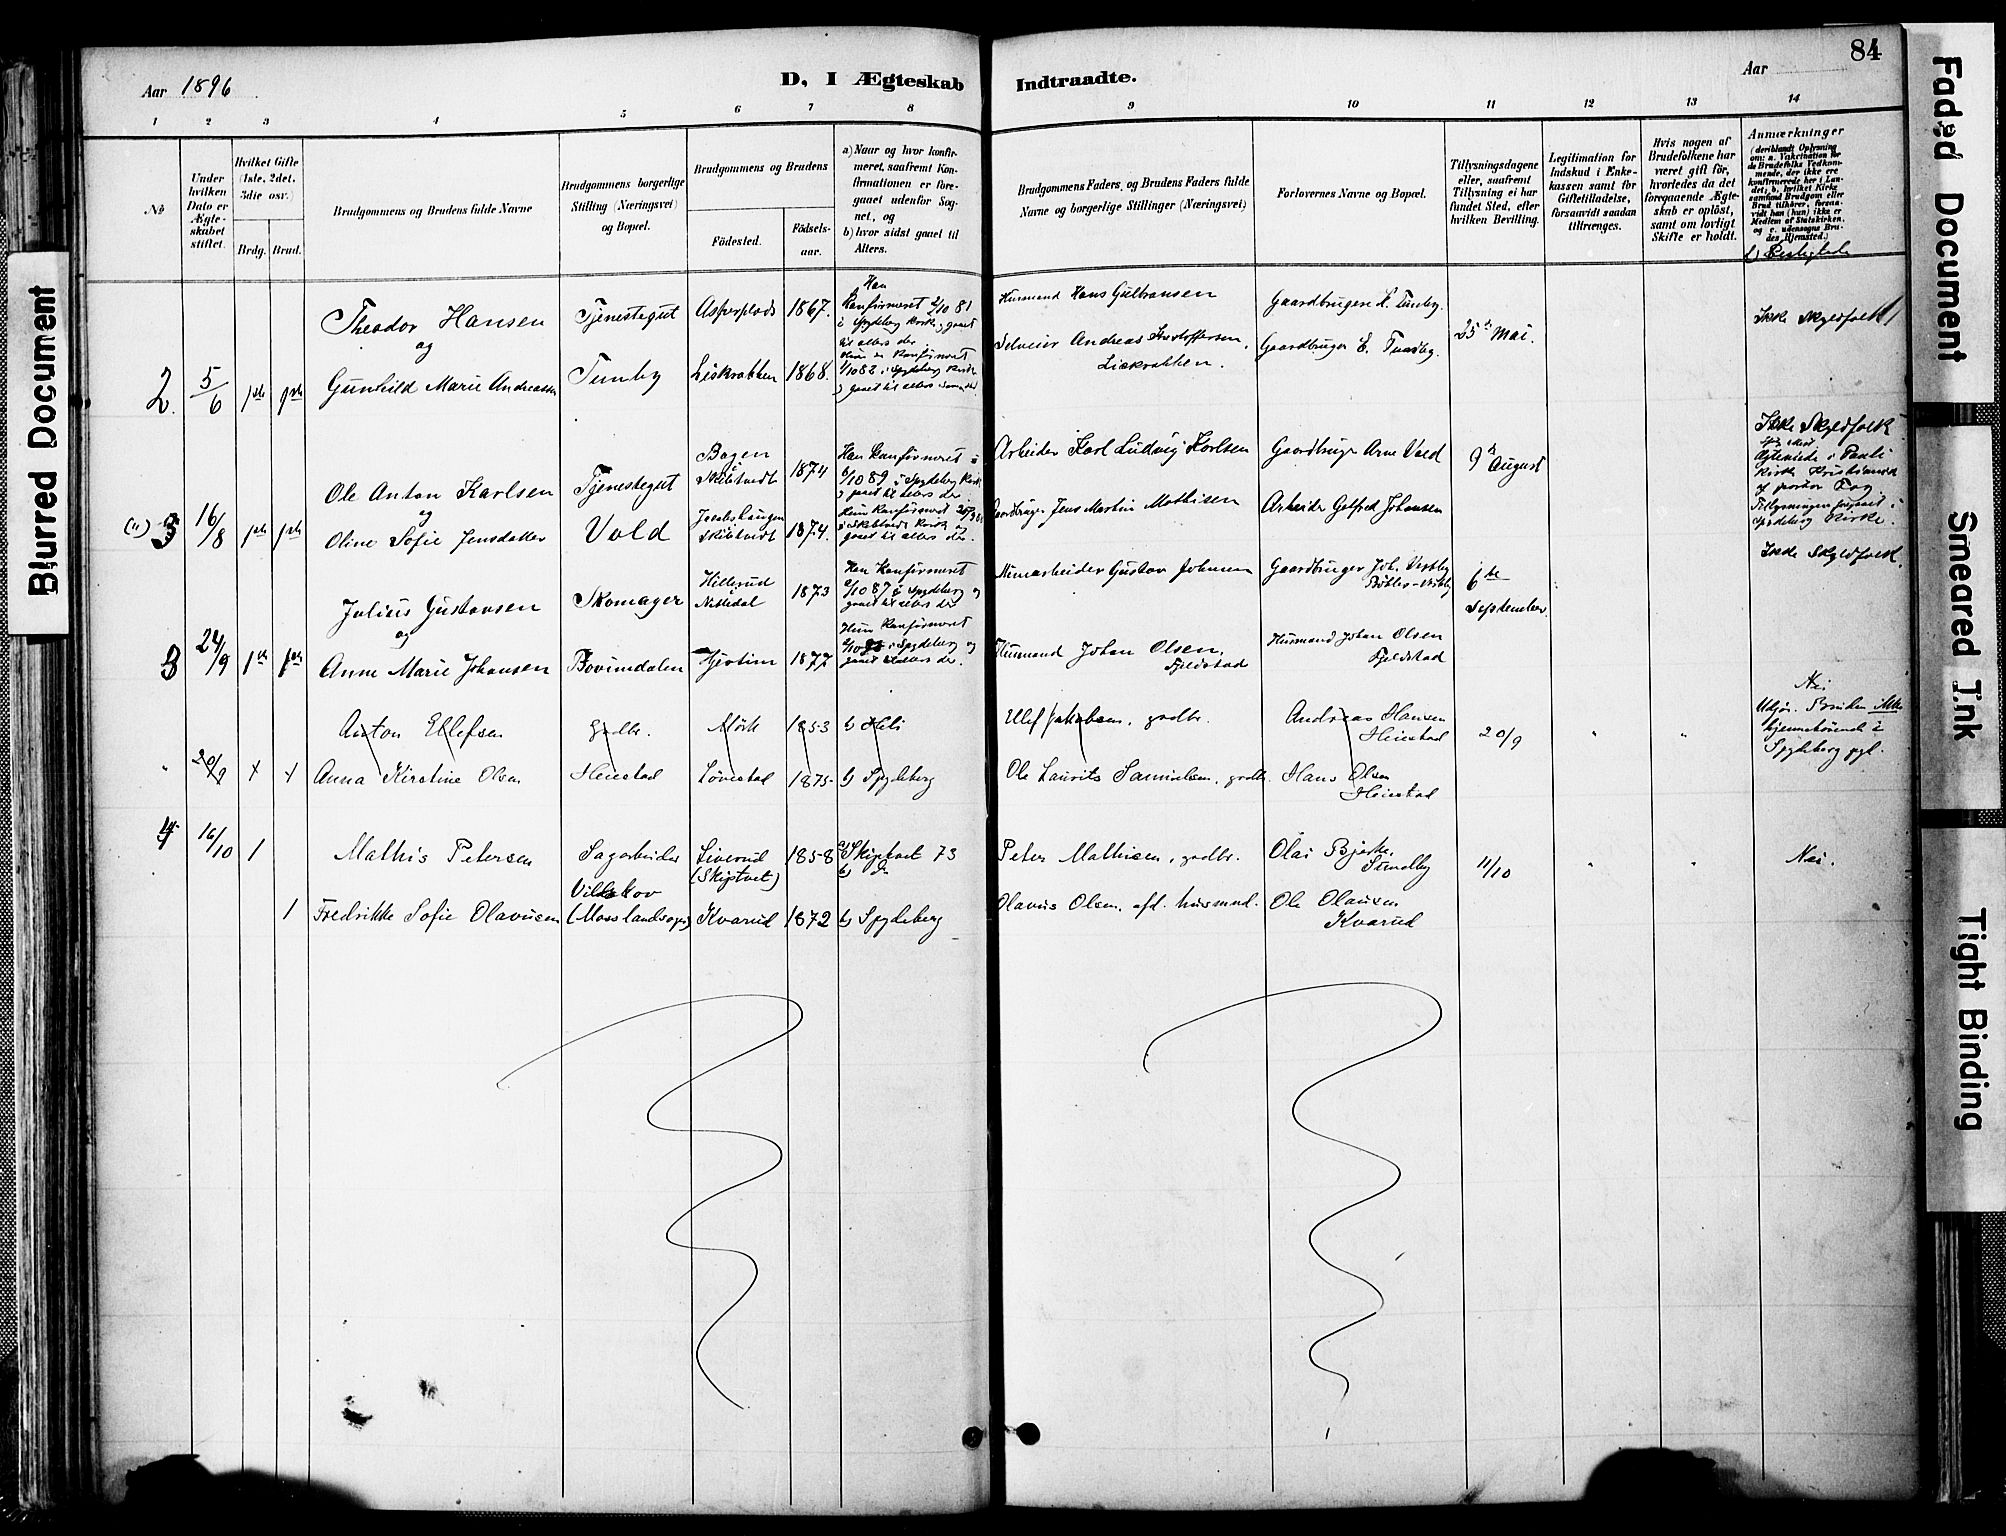 84
Aar 1896
D, I Ægteskab Indtraadte.
Aar
1 2 3 4 5 6 7 8 9 10 11 12 13 14
No
Under hvilken Dato er Ægteskabet stiftet.
Hvilket Gifte (1ste, 2det, 3die osv.)
Brdg. Brud.
Brudgommens og Brudens fulde Navne
Brudgommens borgerlige Stilling (Næringsvei) og Bopæl.
Brudgommens og Brudens
Fødested.
Fødselsaar.
a) Naar og hvor konfirmeret, saafremt Konfirmationen er foregaaet udenfor Sognet, og
b) hvor sidst gaaet til Alters.
Brudgommens Faders, og Brudens Faders fulde Navne og borgerlige Stillinger (Næringsvei)
Forlovernes Navne og Bopæl.
Tillysningsdagene eller, saafremt Tillysning ei har fundet Sted, efter hvilken Bevilling.
Legitimation for Indskud i Enkekassen samt for Giftetilladelse, forsaavidt saadan tiltrænges.
Hvis nogen af Brudefolkene har været gift før, hvorledes da det foregaaende Ægteskab er opløst, samt om lovligt Skifte er holdt.
Anmærkninger
(deriblandt Oplysning om: a. Vakcination for de Brudefolks Vedkommende, der ikke ere konfirmerede her i Landet; b. hvilket Kirkesamfund Brudgom eller Brud tilhører, forsaavidt han (hun) ikke er Medlem af Statskirken, og c. udensogns Brudes Hjemsted.)
2. 5/6 1ste 1ste
Theodor Hansen Tjenestegut Asperplads 1867.
Han konfirmeret 2/10 81 i Spydeberg Kirke, gaaet til alters der
Husmand Hans Gulbransen
Gaardbruger K. Tunby.
25de Mai.
Ikke Skyldfolk
og
Gunhild Marie Andreasen Tunby Liskrakken 1868.
Selveier Andreas Kristoffersen, Liskrakken.
Gaardbruger E. Tunby.
(11) 3 16/8 1ste 1ste
Ole Anton Karlsen Tjenestegut Bogen Skibtvedt 1874
Han konfirmeret 6/10 89 i Spydeberg Kirke, gaaet til alters der.
Arbeider Karl Ludvig Karlsen
Gaardbruger Arne Vold
9de August
Ikke Skyldfolk
og
Oline Sofie Jensdatter Vold Skibtvedt 1874.
Gaardbruger Jens Martin Mathisen
Arbeider Gelfred Johansen
Spydeberg Kirke.
3 24/9 1ste 1ste
Julius Gustavsen Skomager Hillerud Nittedal 1873
Han konfirmeret 2/10 87 i Spydeberg og gaaet til alters der
Gustav Johnsen
Gaardbruger Joh. Vestby
6te September
Ikke Skyldfolk
og
Anne Marie Johansen Bovimdalen 1877
Hun konfirmeret i Spydeberg og gaaet til alters der.
Husmand Johan Olsen, Fjeldstad
Husmand Johan Olsen Fjeldstad
" 20/9
Anton Ellefsen gbr. Mørk 1853 b) Heli
Ellef Jakobsen, gdbr.
Andreas Hansen Heiestad
20/9 " "
Nei
Udgår. Bruden ikke hjemmehørende i Spydeberg pgl.
Anna Kirstine Olsen Heiestad Løvestad 1875 b) Spydeberg
Ole Laurits Samuelsen, gdbr.
Hans Olsen Heiestad
4 16/10 1
Mathis Petersen Sagarbeider Liverud (Skiptvet) 1858 a) Skiptvet 73 b) Do
Peter Mathisen, gdbr.
Olai Bjerke, Sundby
11/10 " "
Nei.
1 Fredrikke Sofie Olavusen (Moss landsogn) Kvarud 1872 b) Spydeberg
Olavus Olsen, afd. husmnd.
Ole Olausen Kvarud
Blurred Document
Faded Document
Smeared Ink
Tight Binding